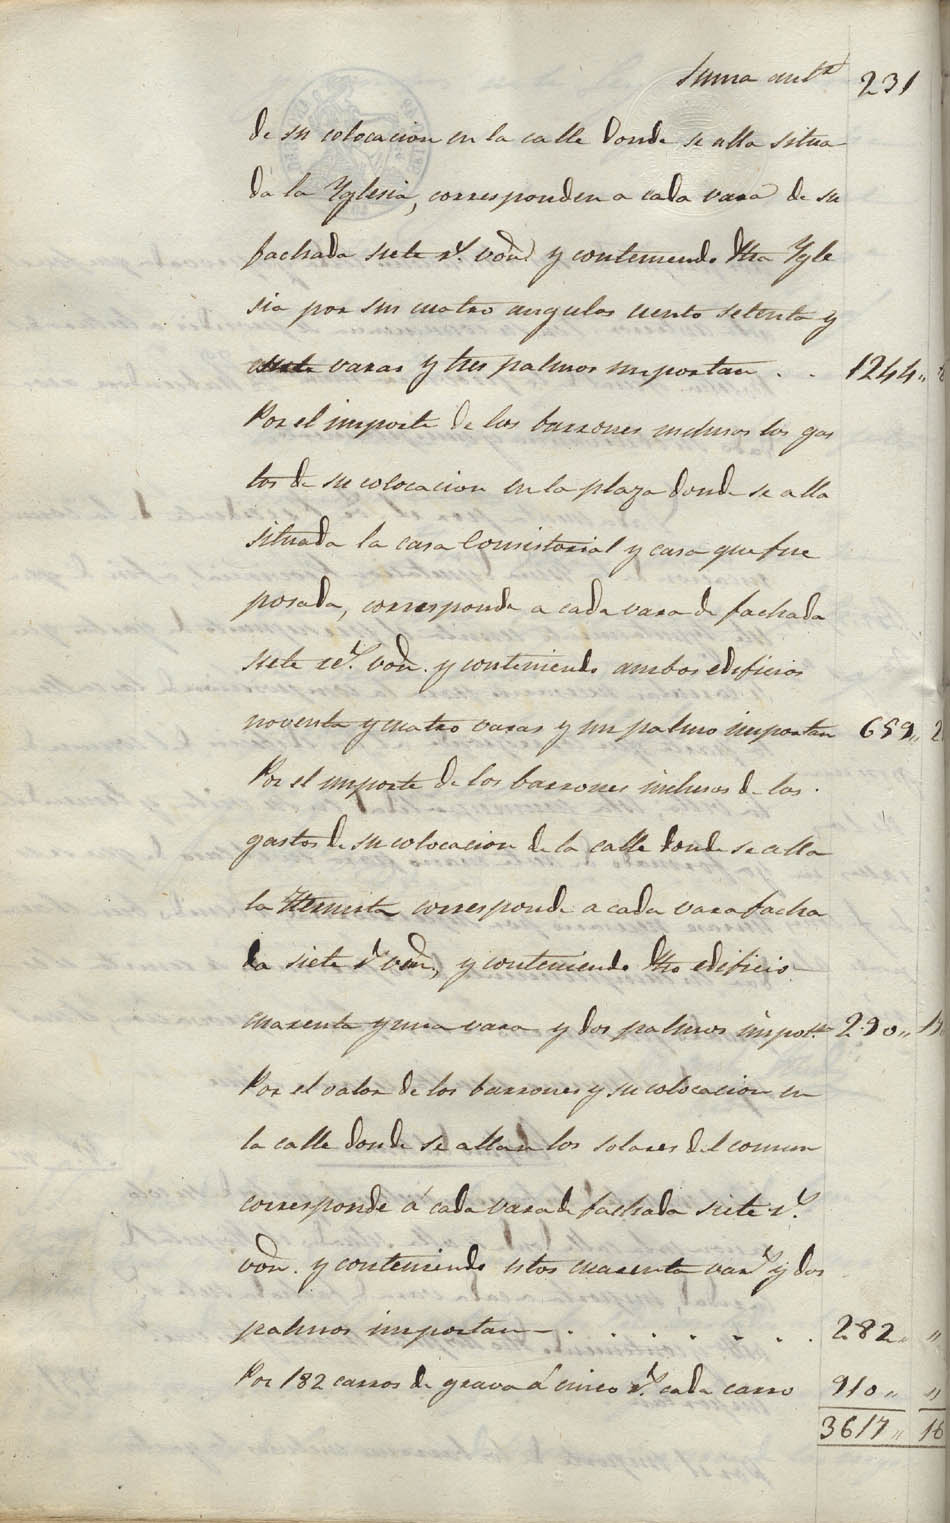 Suma antr 231
de su colocacion en la calle donde se alla situa
da la Yglesia, corresponden a cada vara de su
fachada siete rs. von y conteniendo dha Ygle
sia por sus cuatro angulos ciento setenta y
siete varas y tres palmos importan . . 1244 „
Por el importe de los barrones inclusos los gas
tos de su colocacion en la plaza donde se alla
situada la casa Consistorial y casa que fue
posada, corresponde a cada vara de fachada
siete rs. von. y conteniendo ambos edificios
noventa y cuatro varas y un palmo importan 659 „ 2
Por el importe de los barrones inclusos de los
gastos de su colocacion de la calle donde se alla
la Hermita corresponde a cada vara facha
da siete rs von, y conteniendo dho edificio
cuarenta y una vara y dos palmos import.n 290 „
Por el valor de los barrones y su colocacion en
la calle donde se allan los solares del comun
corresponde á cada vara de fachada siete rs.
von. y conteniendo estos cuarenta vars y dos
palmos importan . . . . . . . 282 „ „
Por 182 carros de grava á cinco rs. cada carro 910 „ „
3617 „ 16